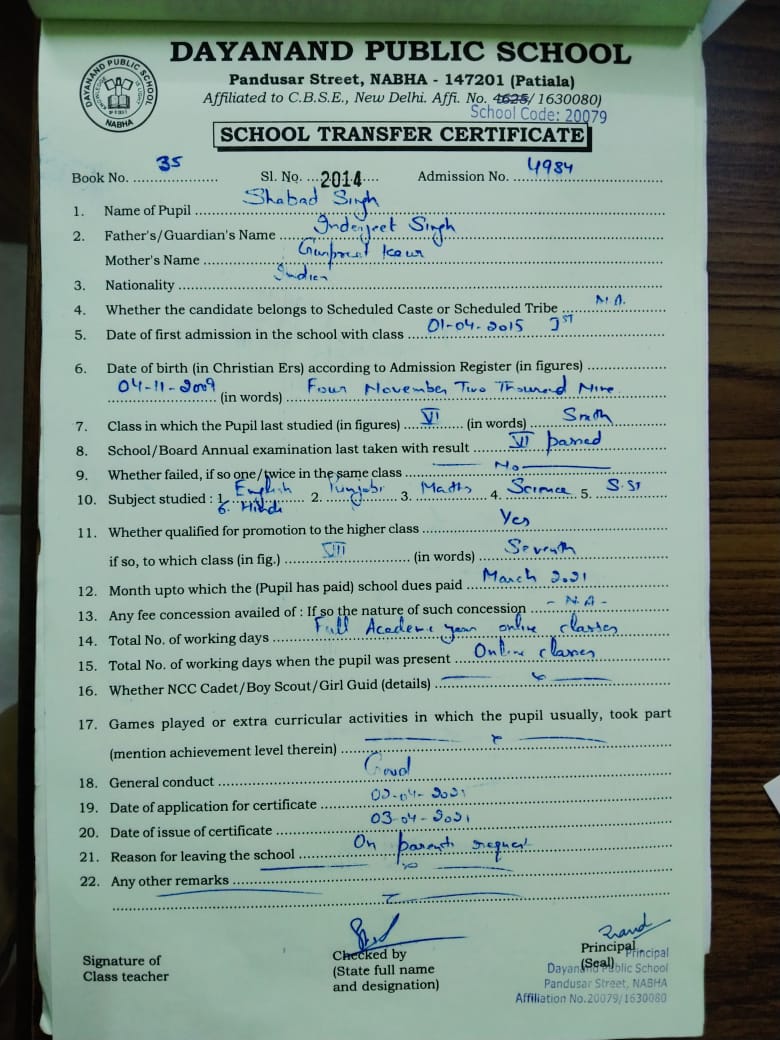 DAYANAND PUBLIC SCHOOL
Pandusar Street, NABHA - 147201 (Patiala)
Affiliated to C.B.S.E., New Delhi. Affi. No. 4625/ 1630080)
School Code: 20079
DAYANAND PUBLIC SCHOOL NABHA
SCHOOL TRANSFER CERTIFICATE
Book No. 35 Sl. No. 2014 Admission No. 4984
1. Name of Pupil Shabad Singh
2. Father's/Guardian's Name Inderjeet Singh
Mother's Name Gurpreet Kaur
3. Nationality Indian
4. Whether the candidate belongs to Scheduled Caste or Scheduled Tribe N.A.
5. Date of first admission in the school with class 01-04-2015 IST
6. Date of birth (in Christian Ers) according to Admission Register (in figures)
04-11-2009 (in words) Four November Two Thousand Nine
7. Class in which the Pupil last studied (in figures) VI (in words) Sixth
8. School/Board Annual examination last taken with result VI passed
9. Whether failed, if so one/twice in the same class No
10. Subject studied : 1. English 2. Punjabi 3. Maths 4. Science 5. S.St
6. Hindi
11. Whether qualified for promotion to the higher class Yes
if so, to which class (in fig.) VII (in words) Seventh
12. Month upto which the (Pupil has paid) school dues paid March 2021
13. Any fee concession availed of : If so the nature of such concession - N.A -
14. Total No. of working days Full Academic year online classes
15. Total No. of working days when the pupil was present Online classes
16. Whether NCC Cadet/Boy Scout/Girl Guid (details)
17. Games played or extra curricular activities in which the pupil usually, took part
(mention achievement level therein)
18. General conduct Good
19. Date of application for certificate 02-04-2021
20. Date of issue of certificate 03-04-2021
21. Reason for leaving the school On parents request
22. Any other remarks
Signature of
Class teacher
Checked by
(State full name
and designation)
Principal
(Seal)
Principal
Dayanand Public School
Pandusar Street, NABHA
Affiliation No.20079/1630080